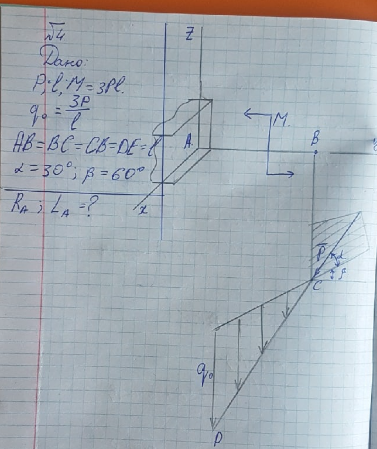 √4
Дано:
P; l; M = 3Pl.
q₀ = 3P/l
AB=BC=CB=DE=l
α=30°; β=60°
R_A; L_A = ?
Z
A
M
B
x
P
α
β
C
q₀
D